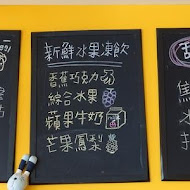 新鮮水果凍飲
香蕉巧克力
綜合水果
蘋果牛奶
芒果鳳梨